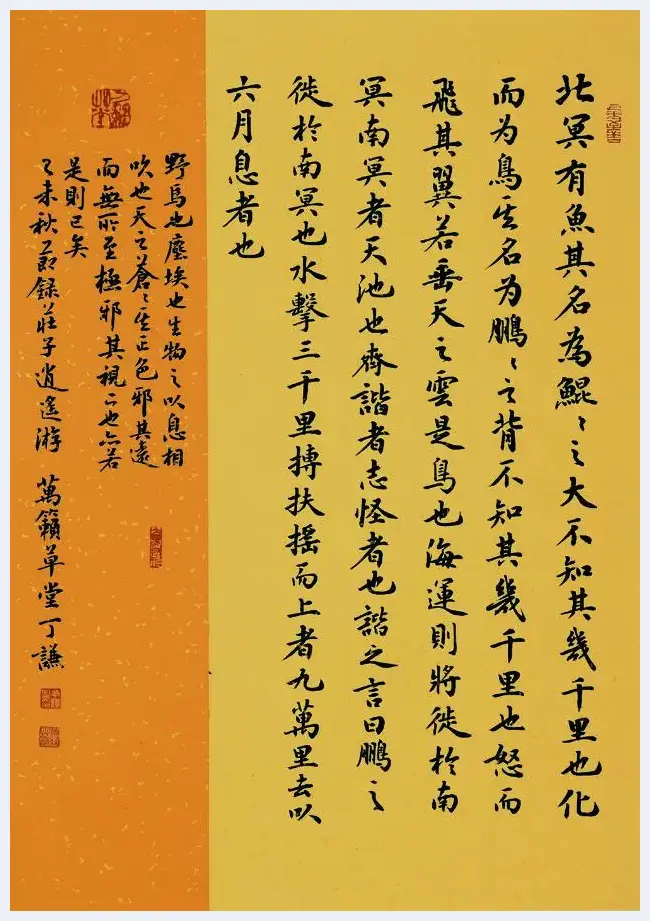 北冥有魚其名為鯤〻之大不知其幾千里也化
而为鳥其名为鵬〻之背不知其幾千里也怒而
飛其翼若垂天之雲是鳥也海運則將徙於南
冥南冥者天池也齊諧者志怪者也諧之言曰鵬之
徙於南冥也水擊三千里搏扶摇而上者九萬里去以
六月息者也
野馬也塵埃也生物之以息相
吹也天之蒼〻其正色邪其遠
而無所至極邪其視下也亦若
是則已矣
乙未秋節録莊子逍遙游 萬籟草堂丁謙